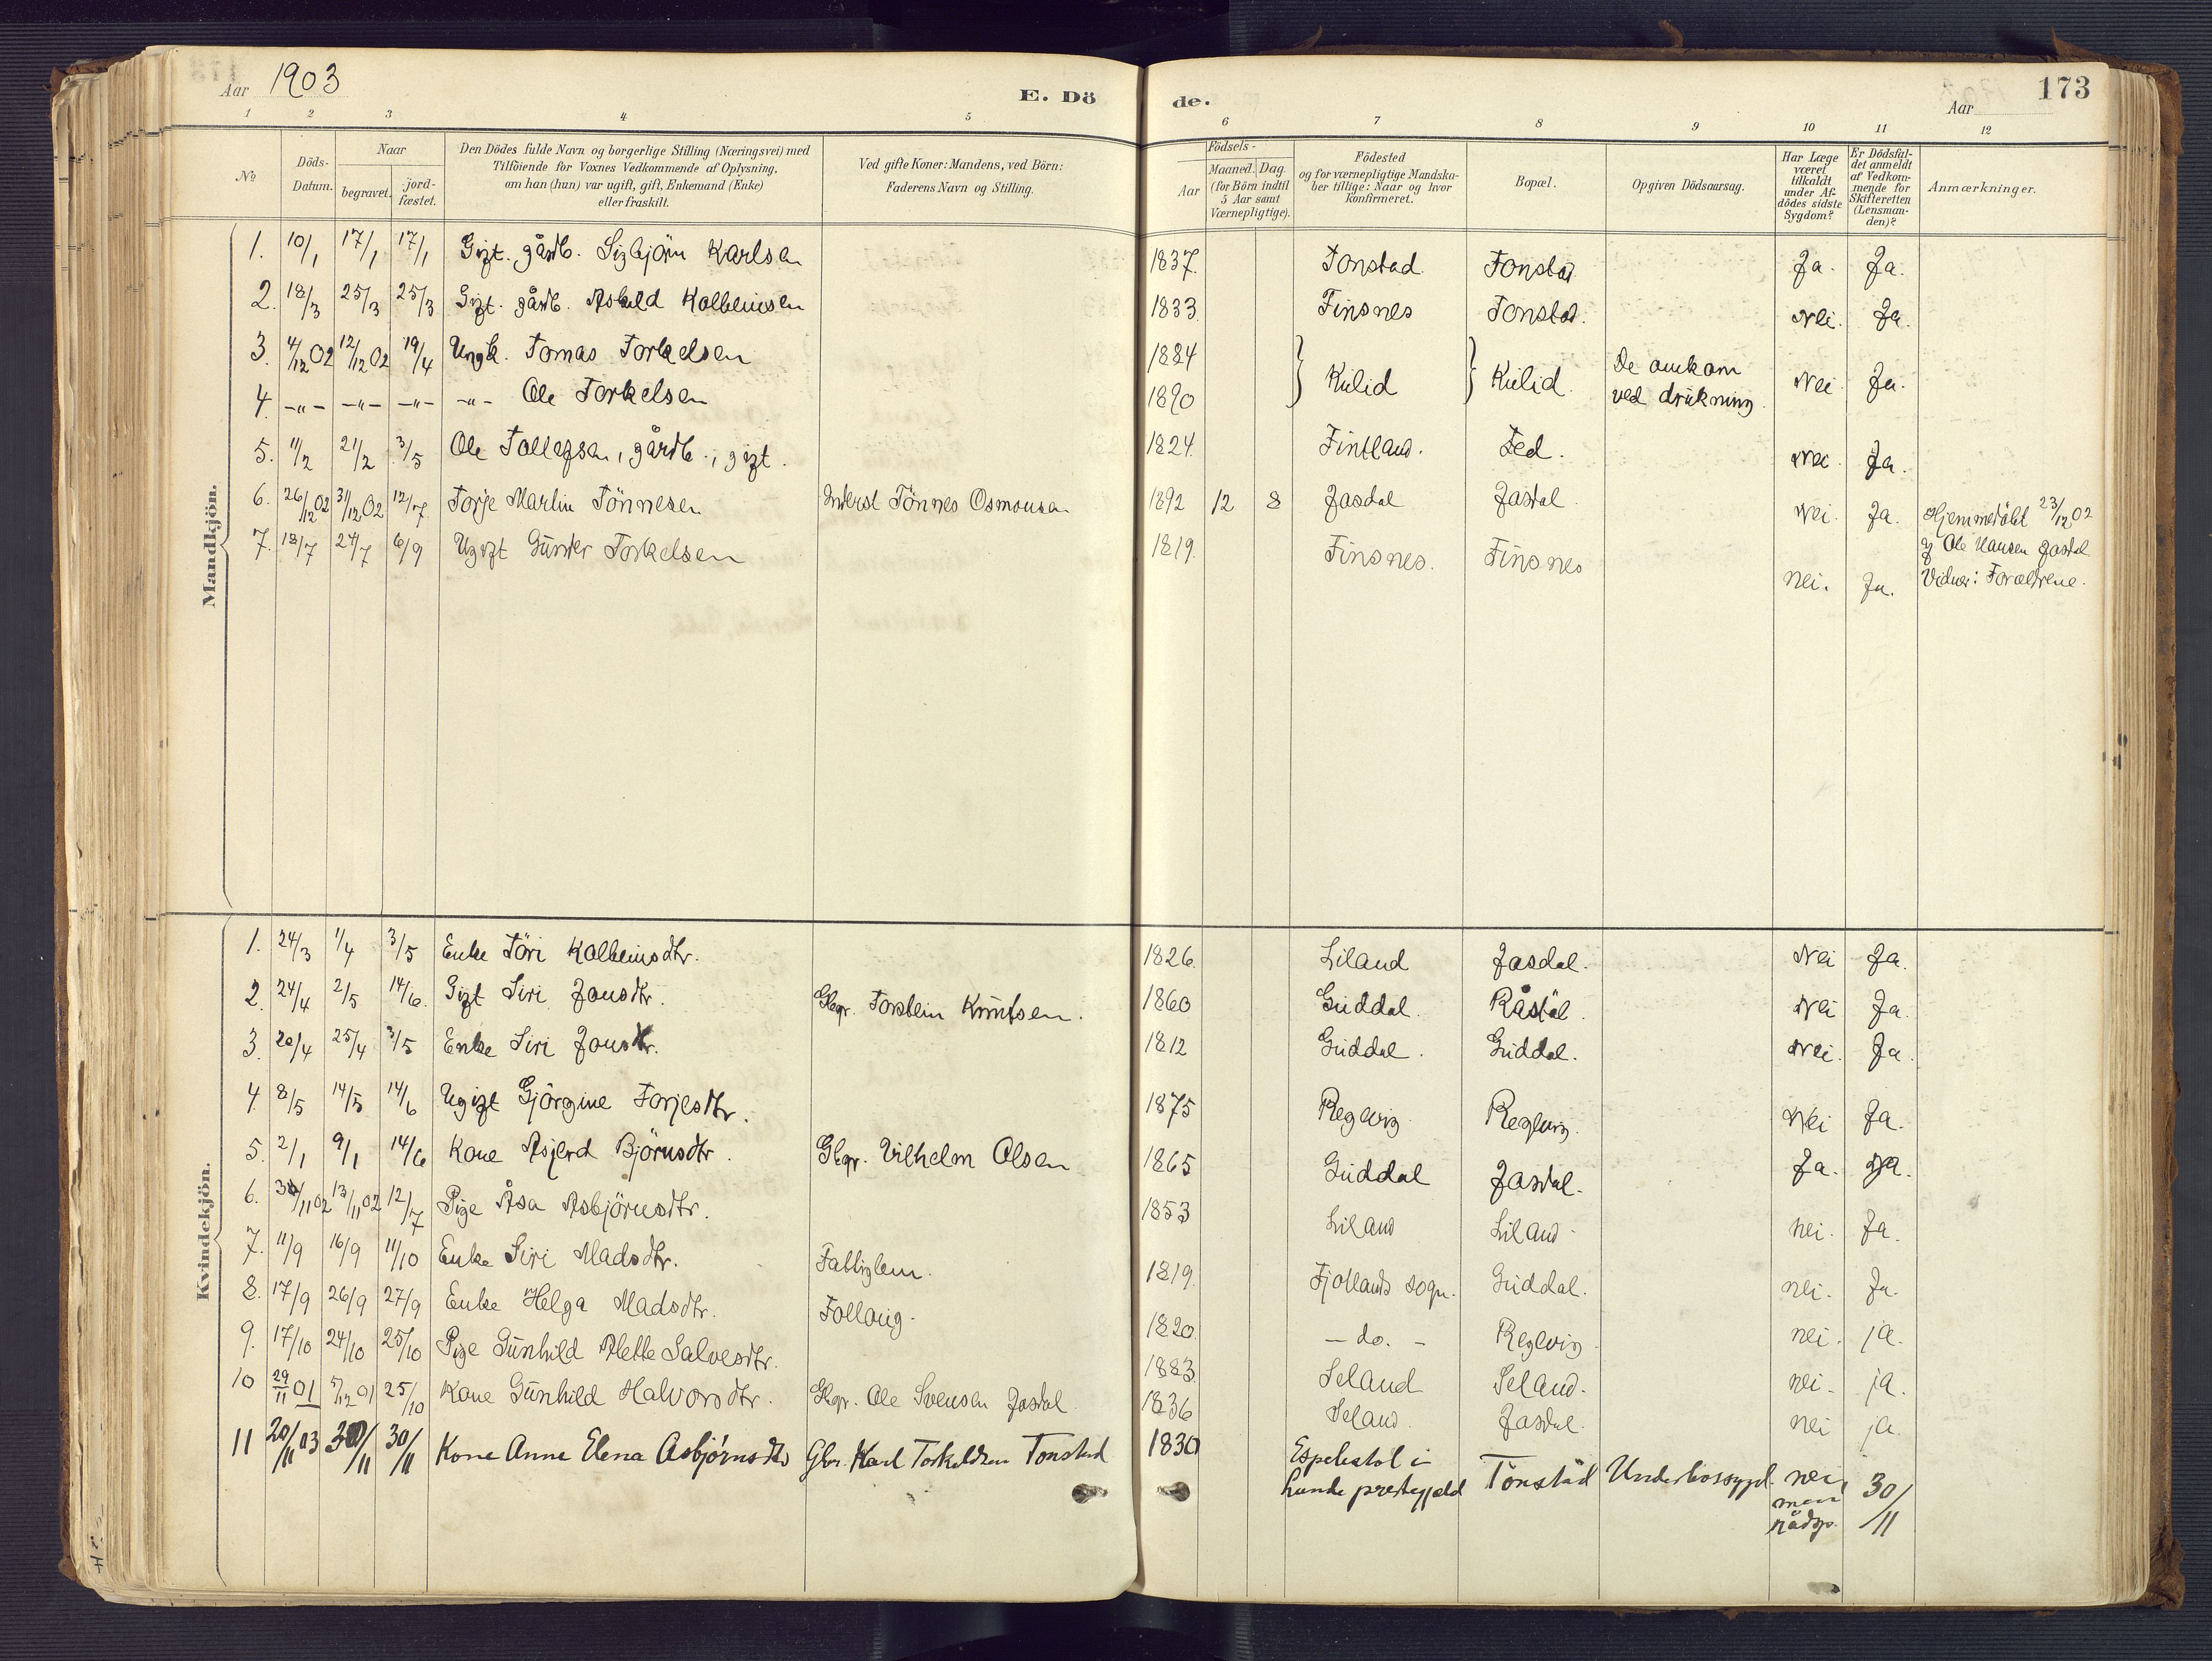 Aar 1903
E. Dö
de.
Aar
173
1 2 3 4 5 6 7 8 9 10 11 12
No
Döds-Datum.
Naar
begravet.
jord-fæstet.
Den Dödes fulde Navn og borgerlige Stilling (Næringsvei) med
Tilföiende for Voxnes Vedkommende af Oplysning,
om han (hun) var ugift, gift, Enkemand (Enke)
eller fraskilt.
Ved gifte Koner: Mandens, ved Börn:
Faderens Navn og Stilling.
Födsels-
Aar
Maaned. Dag.
(for Börn indtil
5 Aar samt
Værnepligtige).
Födested
og for værnepligtige Mandska-
ber tillige: Naar og hvor
konfirmeret.
Bopæl.
Opgiven Dödsaarsag.
Har Læge
været
tilkaldt
under Af-
dödes sidste
Sygdom?
Er Dödsfal-
det anmeldt
af Vedkom-
mende for
Skifteretten
(Lensman-
den)?
Anmærkninger.
Mandkjön.
1. 10/1 17/1 17/1 Gift. gårdb. Sigbjörn Karlsen 1837 Tonstad. Tonstad Ja. Ja.
2. 18/3 25/3 25/3 Gift. gårdb. Askild Kolbeinsen 1833 Finsnes Tonstad. Nei. Ja.
3. 4/12 02 12/12 02 19/4 Ungk. Tomas Torkelsen 1884 Kulid Kulid. De omkom ved drukning. Nei Ja.
4. -"- -"- -"- -"- Ole Torkelsen 1890
5. 11/2 21/2 3/5 Ole Tollefsen, gårdb., gift. 1824. Fintland. Fed. Nei Ja.
6. 26/12 02 31/12 02 12/7 Torje Martin Tönnesen Inderst Tönnes Osmonsen 1892 12 8 Josdal Josdal Nei. Ja. Hjemmedöbt 23/12 02
af Ole Hansen Josdal
Vidner: Forældrene.
7. 18/7 24/7 6/9 Ugift Gunder Torkelsen 1819. Finsnes. Finsnes nei. Ja.
Kvindekjön.
1. 24/3 1/4 3/5 Enke Töri Kolbeinsdtr. 1826 Liland Josdal. Nei Ja.
2. 24/4 2/5 14/6. Gift Siri Jonsdtr. Gbgr. Torstein Knutsen. 1860 Guddal. Råstöl. Nei Ja.
3. 20/4 25/4 3/5 Enke Siri Jonsdtr. 1812 Guddal. Guddal. Nei. Ja.
4. 8/5 14/5 14/6 Ugift Gjörgine Torjesdtr. 1875 Regevig Regevig. Nei Ja.
5. 2/1 9/1 14/6 Kone Asjerd Björnsdtr. Gbgr. Vilhelm Olsen 1865 Guddal Josdal. Ja. Ja.
6. 13/11 02 12/7 Pige Åsa Asbjörnsdtr. 1853 Liland Liland. nei. Ja.
7. 11/9 16/9 11/10 Enke Siri Madsdtr. Fattiglem. 1819. Fjotlands sogn. Guddal. nei. Ja.
8. 17/9 26/9 27/9 Enke Helga Madsdtr. Follaug. 1820 - do. - Regevig nei. ja.
9. 17/10 24/10 25/10 Pige Gunhild Alette Salvesdtr. 1883. Seland Seland. nei. ja.
10 29/11 01 5/12 01 25/10 Kone Gunhild Halvorsdtr. Gbgr. Ole Svensen Josdal. 1836 Seland. Josdal. nei ja.
11 20/11 03 30/11 30/11 Kone Anne Elena Asbjørnsdtr Gbr. Karl Torkeldsen Tonstad 1830 Espelistöl i
Lunde prestegjeld Tonstad Underlivssygd. nei,
men
rådsp. 30/11